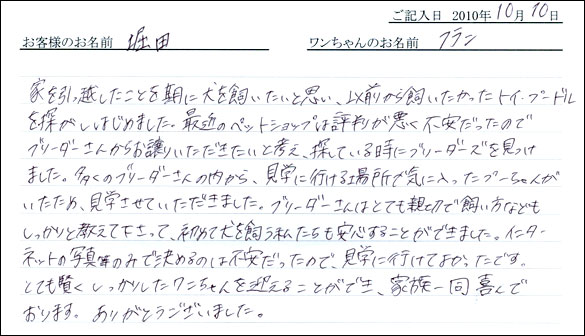 ご記入日 2010年10月10日
お客様のお名前 堀田 ワンちゃんのお名前 フラン
家を引っ越したことを期に犬を飼いたいと思い、以前から飼いたかったトイ・プードル
を探がしはじめました。最近のペットショップは評判が悪く不安だったので
ブリーダーさんからお譲りいただきたいと考え、探している時にブリーダーズを見つけ
ました。多くのブリーダーさんの内から、見学に行ける場所で気に入ったプーちゃんが
いたため、見学させていただきました。ブリーダーさんはとても親切で飼い方なども
しっかりと教えて下さって、初めて犬を飼う私たちも安心することができました。インター
ネットの写真等のみで決めるのは不安だったので、見学に行けてよかったです。
とても賢くしっかりしたワンちゃんを迎えることができ、家族一同喜んで
おります。ありがとうございました。